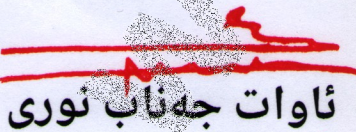 ئاوات جەناب نوری